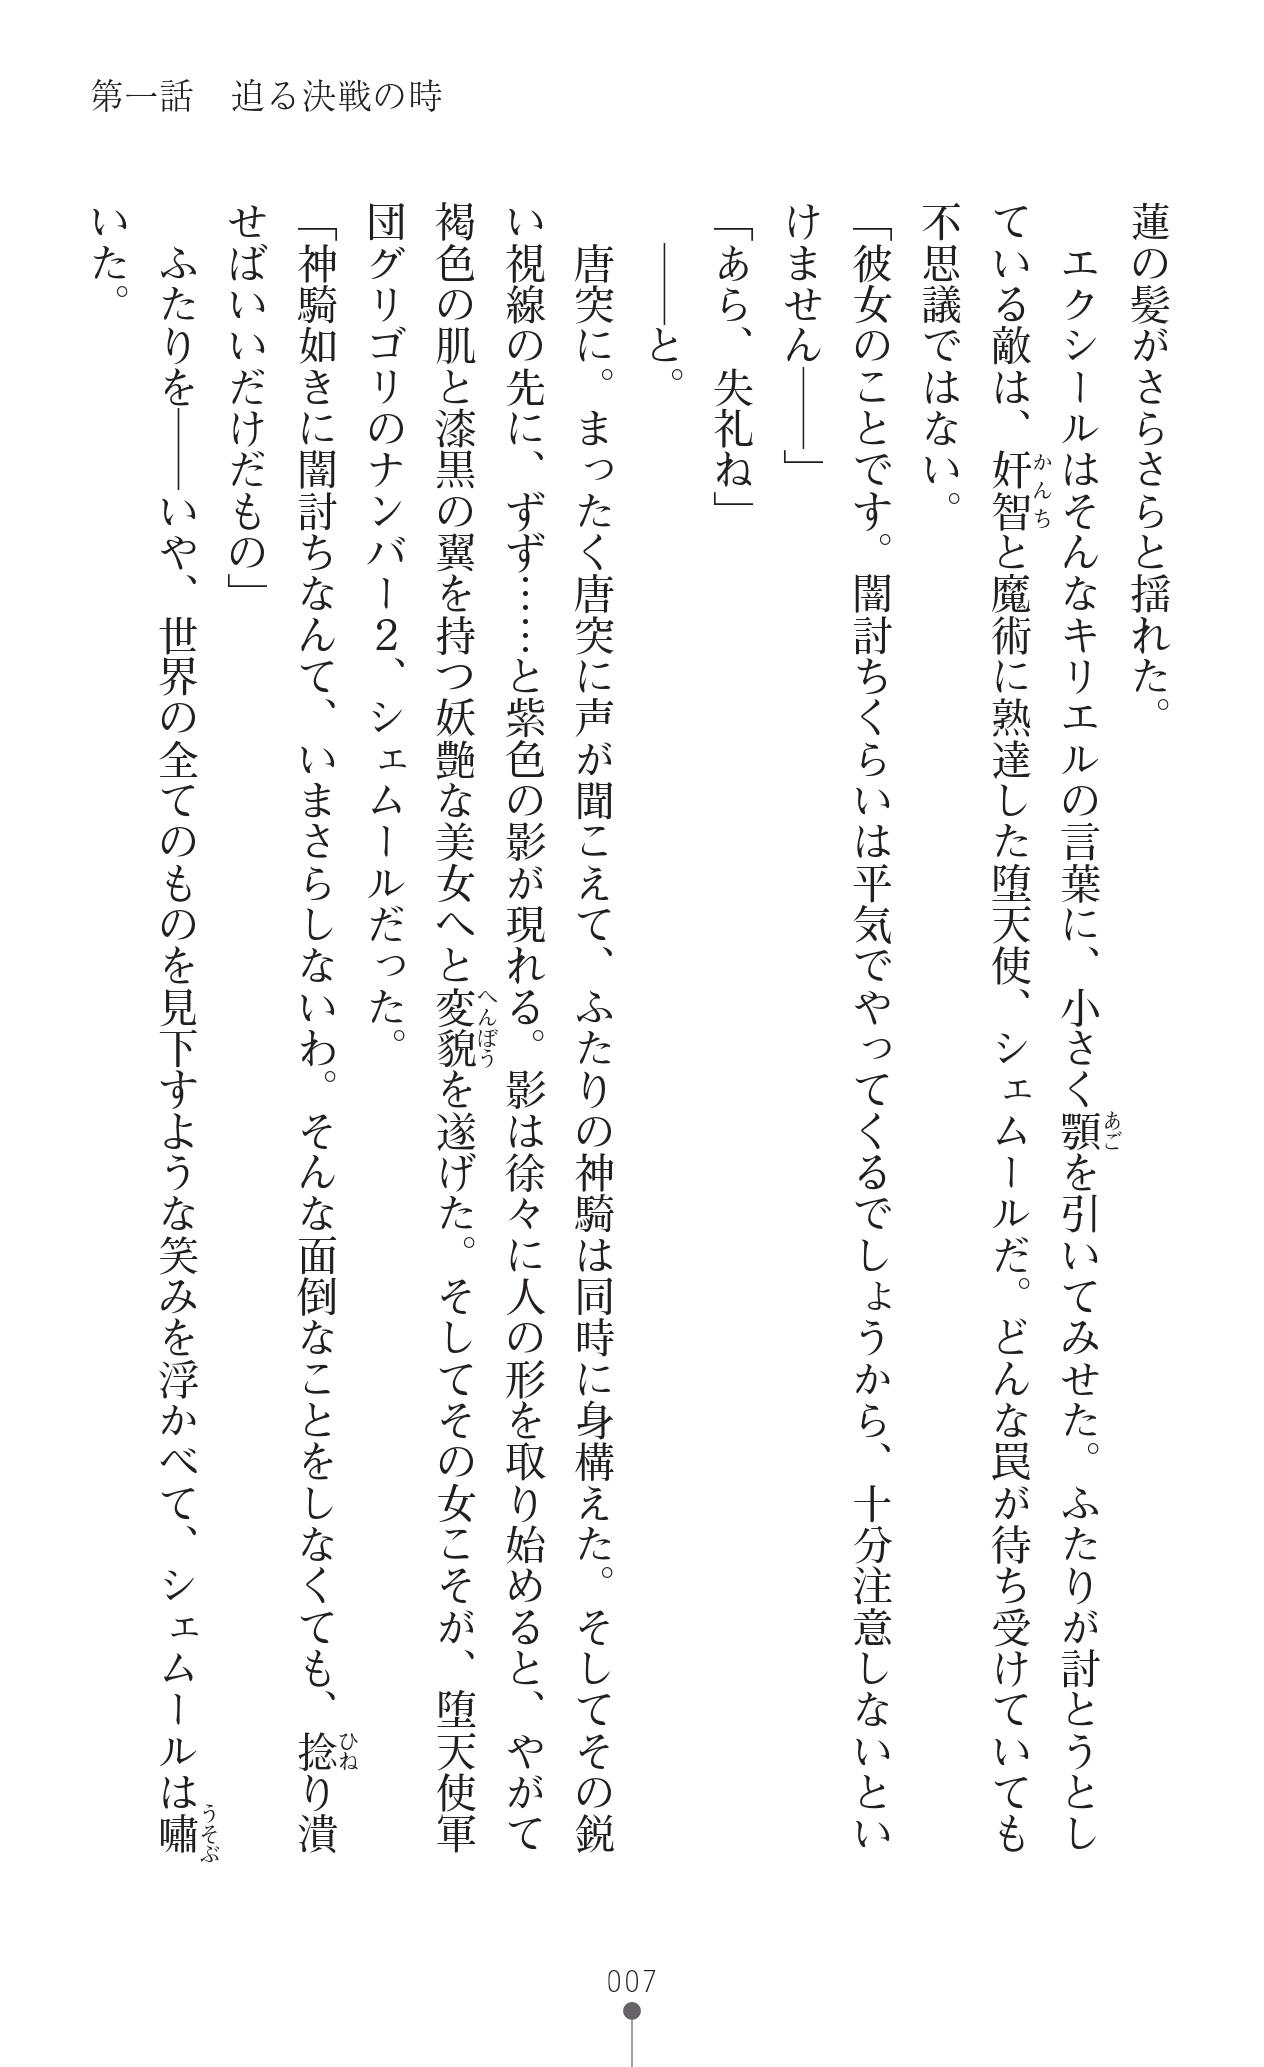 第一話　迫る決戦の時
蓮の髪がさらさらと揺れた。
　エクシールはそんなキリエルの言葉に、小さく顎を引いてみせた。ふたりが討とうとし
ている敵は、奸智と魔術に熟達した堕天使、シェムールだ。どんな罠が待ち受けていても
不思議ではない。
「彼女のことです。闇討ちくらいは平気でやってくるでしょうから、十分注意しないとい
けません――」
「あら、失礼ね」
　――と。
　唐突に。まったく唐突に声が聞こえて、ふたりの神騎は同時に身構えた。そしてその鋭
い視線の先に、ずず……と紫色の影が現れる。影は徐々に人の形を取り始めると、やがて
褐色の肌と漆黒の翼を持つ妖艶な美女へと変貌を遂げた。そしてその女こそが、堕天使軍
団グリゴリのナンバー２、シェムールだった。
「神騎如きに闇討ちなんて、いまさらしないわ。そんな面倒なことをしなくても、捻り潰
せばいいだけだもの」
　ふたりを――いや、世界の全てのものを見下すような笑みを浮かべて、シェムールは嘯
いた。
かんち
あご
へんぼう
ひね
うそぶ
007